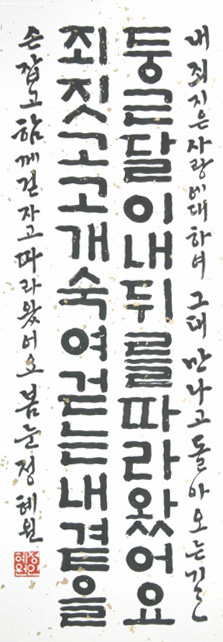 내 죄지은사랑에대하여 그대 만나고 돌아오는길
둥근달이내뒤를따라왔어요
죄짓고고개숙여걷는내곁을
손잡고 함께걷자고따라왔어요 봄눈 정혜원